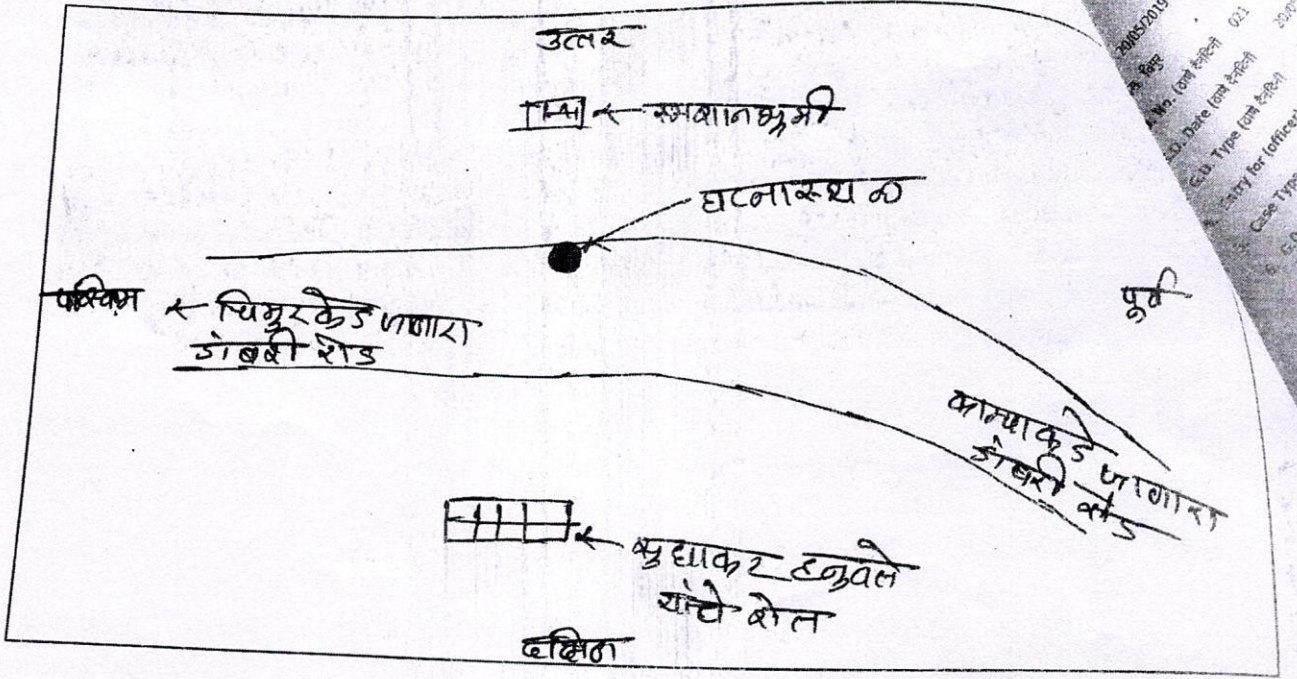 उत्तर
स्मशानभूमी
घटनास्थळ
पश्चिम
चिमुरकडे जाणारा
डांबरी रोड
पूर्व
कडे जाणारा
डांबरी रोड
सुधाकर हनुवते
यांचे शेत
दक्षिण
20/05/2019
No. (ठाणे दैनंदिनी 021
G.D. Date (ठाणे दैनंदिनी
G.D. Type (ठाणे दैनंदिनी
Entry for (officer)
Case Type